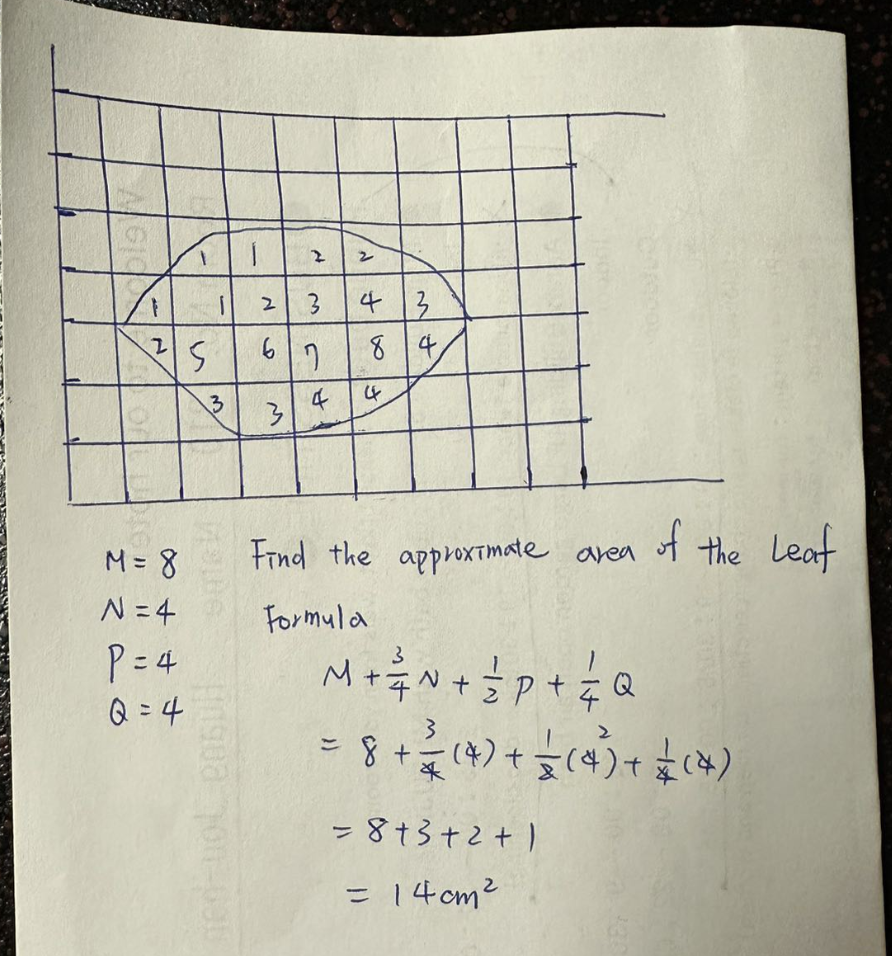 1 1 2 2
1 1 2 3 4 3
2 5 6 7 8 4
3 3 4 4
M = 8 Find the approximate area of the Leaf
N = 4 Formula
P = 4 M + 3/4 N + 1/2 P + 1/4 Q
Q = 4
= 8 + 3/4 (4) + 1/2 (4)² + 1/4 (4)
= 8 + 3 + 2 + 1
= 14 cm²